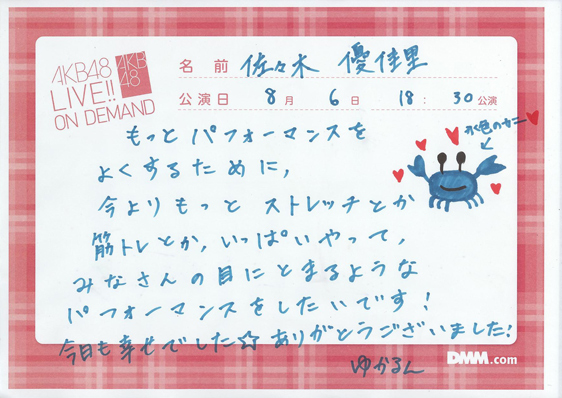 AKB48
LIVE!!
ON DEMAND
AKB
48
名前 佐々木 優佳里
公演日 8月 6日 18:30公演
もっと パフォーマンスを
よくするために,
今よりもっと ストレッチとか
筋トレとか, いっぱいやって,
みなさんの目にとまるような
パフォーマンスをしたいです!
今日も幸せでした☆ ありがとうございました!
ゆかるん
色のカニ
DMM.com